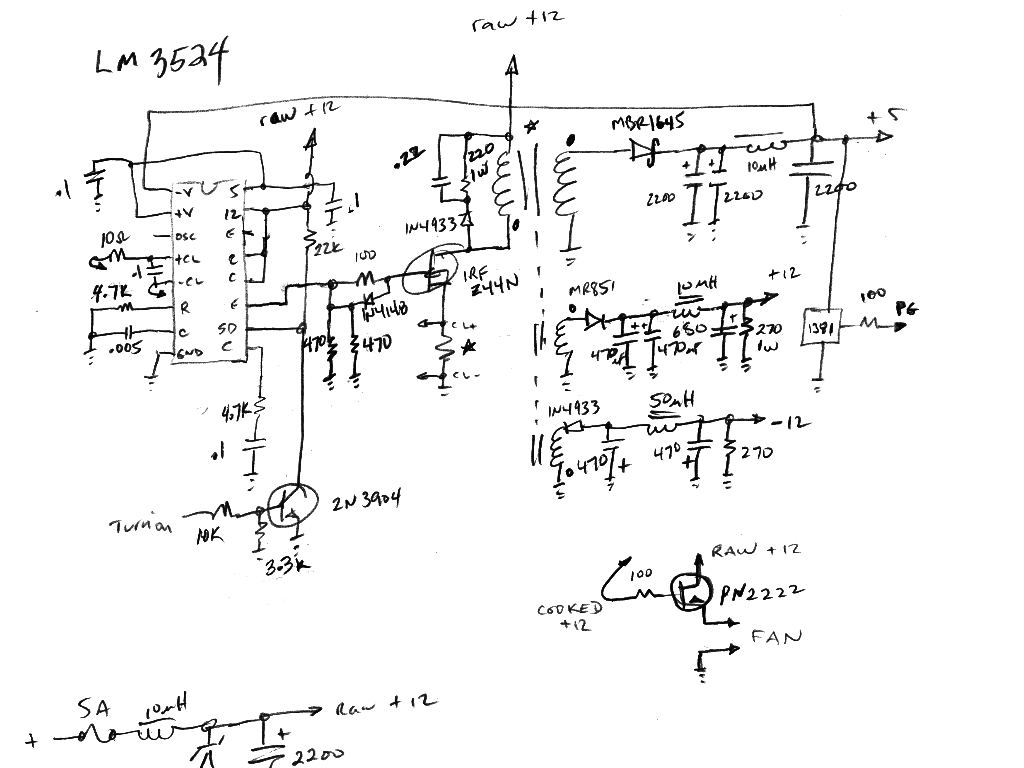 raw +12
LM 3524
raw +12
.22
220
1W
*
MBR1645
+5
10µH
2200
2200
2200
.1
-V
5
+V
12
OSC
E
+CL
-CL
C
R
E
C
SD
GND
C
.1
10Ω
.1
4.7K
.005
22K
100
1N4933
IRF
Z44N
1N4148
470
470
CL+
*
CL-
MR851
10µH
+12
470µF
470µF
680
270
1W
1381
100
PG
1N4933
50µH
-12
470
+
470
+
270
4.7K
.1
Turnon
10K
3.3K
2N3904
RAW +12
100
PN2222
COOKED
+12
FAN
5A
10µH
Raw +12
+
+
2200